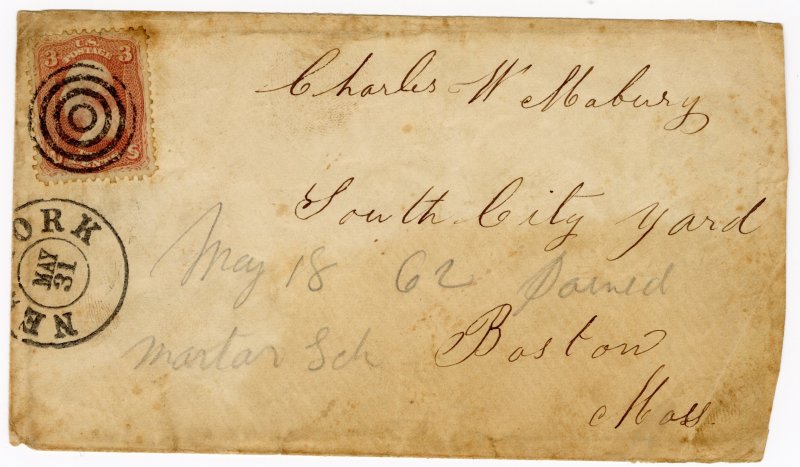 3 U.S. 3
POSTAGE
S
Charles W Mabury
South City Yard
May 18 62 Joined
Martar Sch
Boston
Mass
NEW YORK
MAY
31